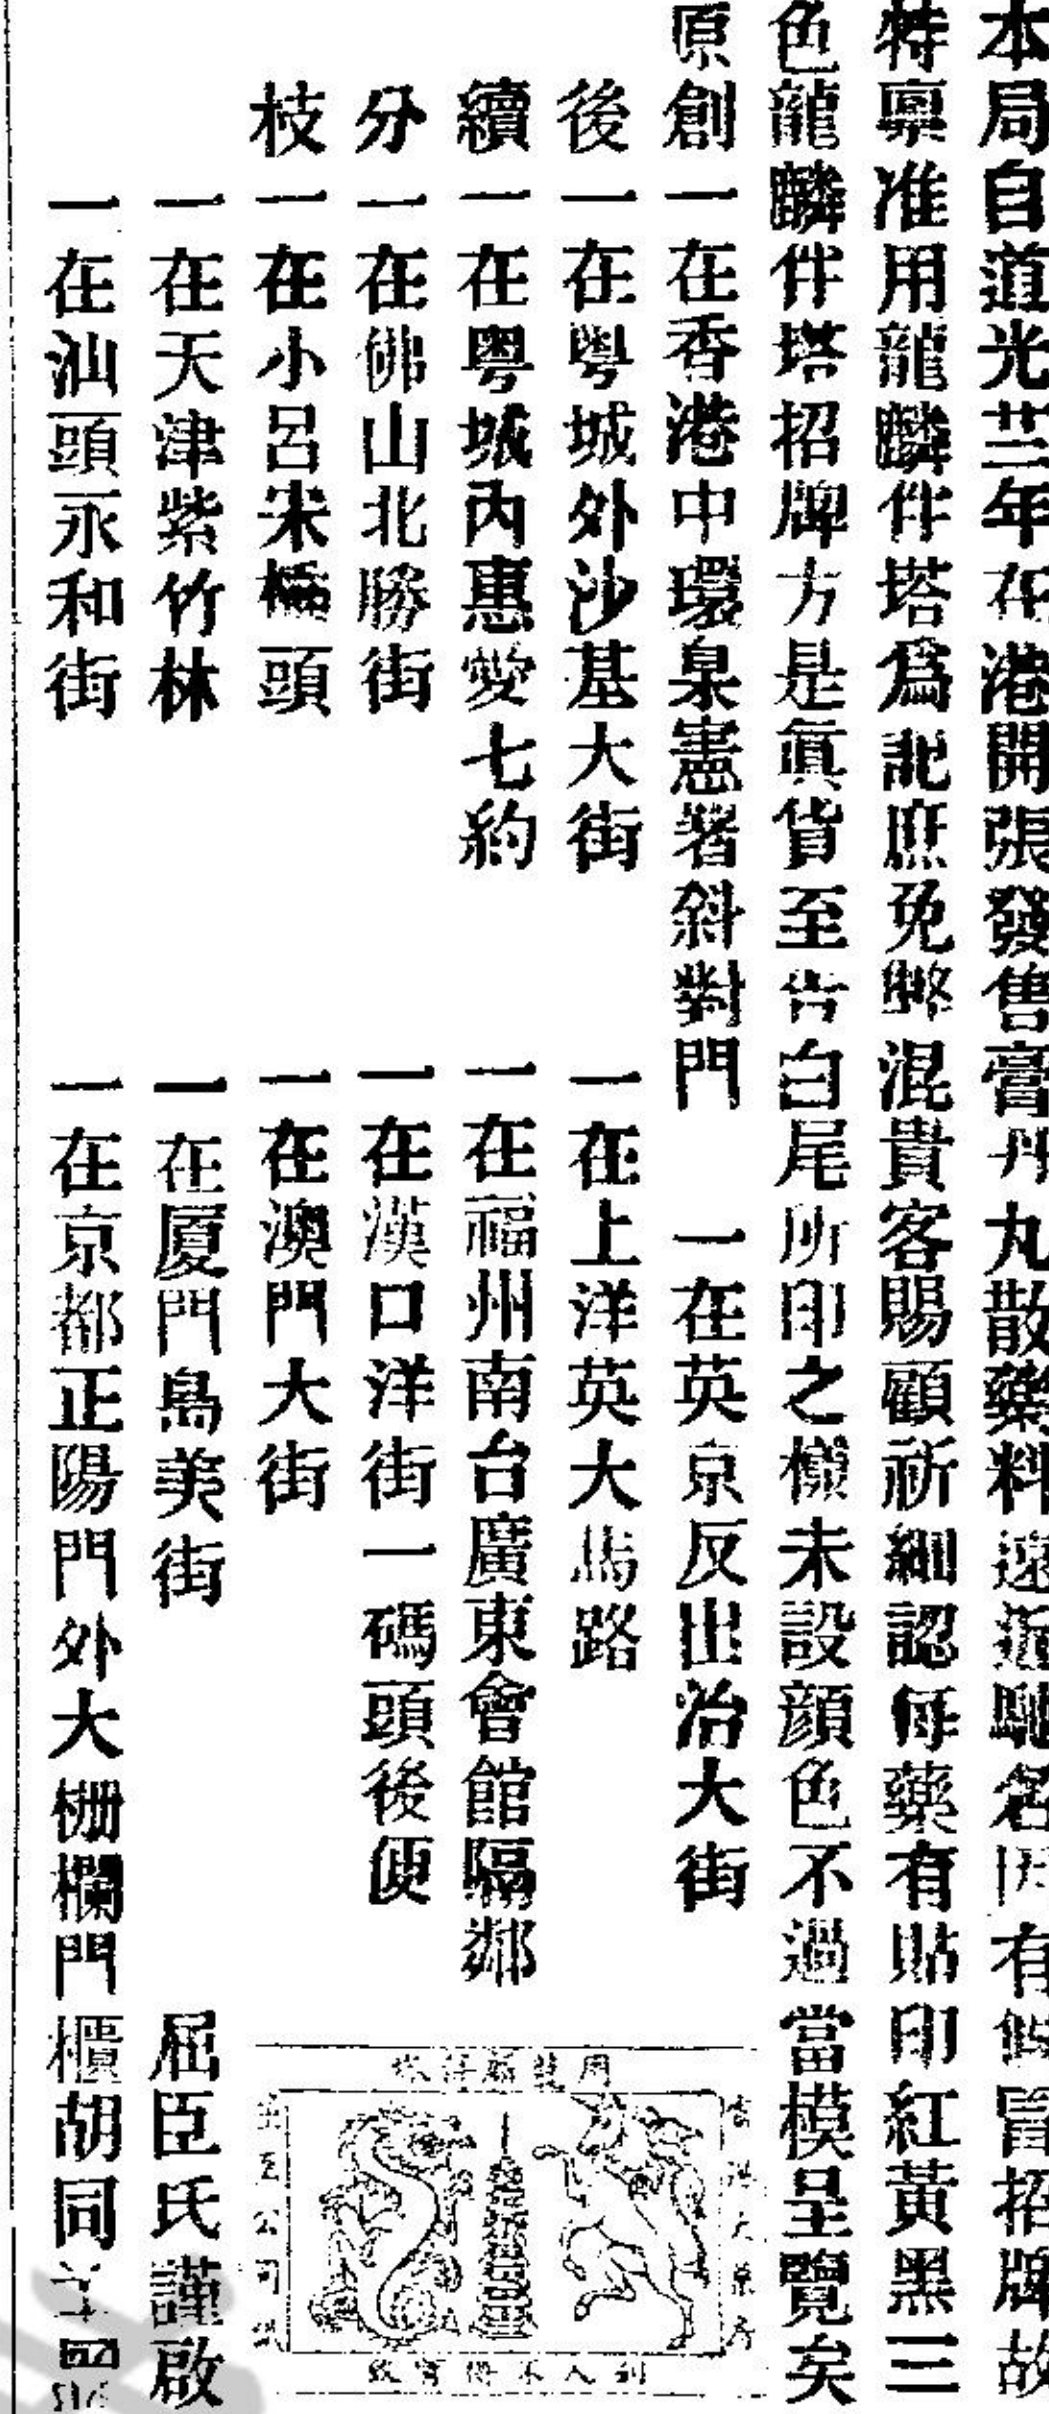 本局自道光廿三年在港開張發售膏丹丸散藥料遠近馳名因有假冒招牌故
特禀准用龍麟伴塔爲記庶免弊混貴客賜顧祈細認每藥有貼印紅黃黑三
色龍麟伴塔招牌方是眞貨至告白尾所印之樣未設顔色不過當模呈覽矣
原創 一在香港中環臬憲署斜對門 一在英京反出治大街
後 一在粤城外沙基大街 一在上洋英大馬路
續 一在粤城內惠愛七約 一在福州南台廣東會館隔鄰
分 一在佛山北勝街 一在漢口洋街一碼頭後便
枝 一在小呂宋橋頭 一在澳門大街
一在天津紫竹林 一在厦門島美街 屈臣氏謹啟
一在汕頭永和街 一在京都正陽門外大柵欄門櫃胡同
用龍麟伴塔
香港大藥房
屈臣公司
別人不得冒效